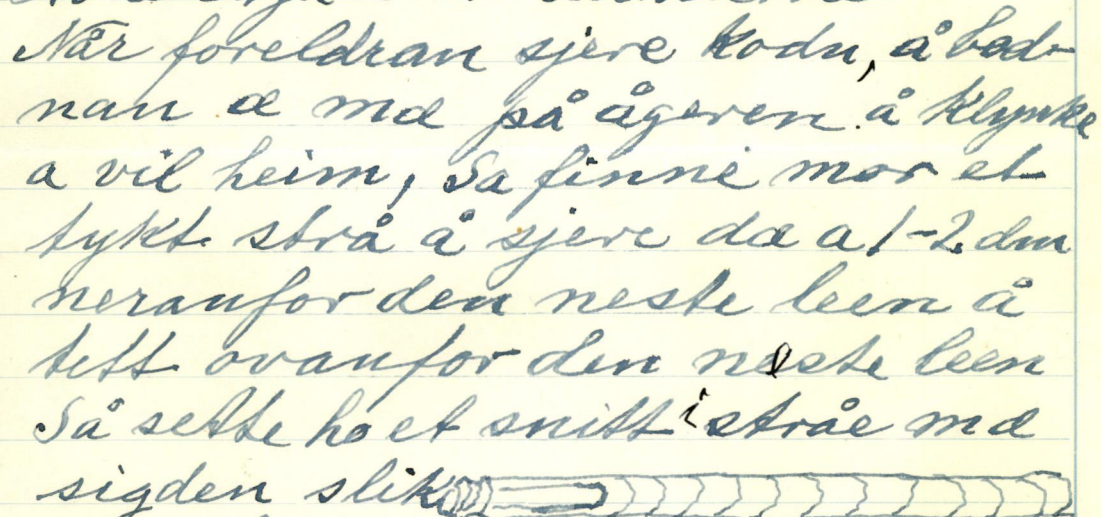 Når foreldran sjere kodn, å bad-
nan æ mæ på ågeren å klynke
a vil heim, Sa finne mor et
tykt strå å sjere dæ a 1-2 dm
neranfor den neste leen å
tett ovanfor den neste leen
Så sette ho et snitt i stråe mæ
sigden slik